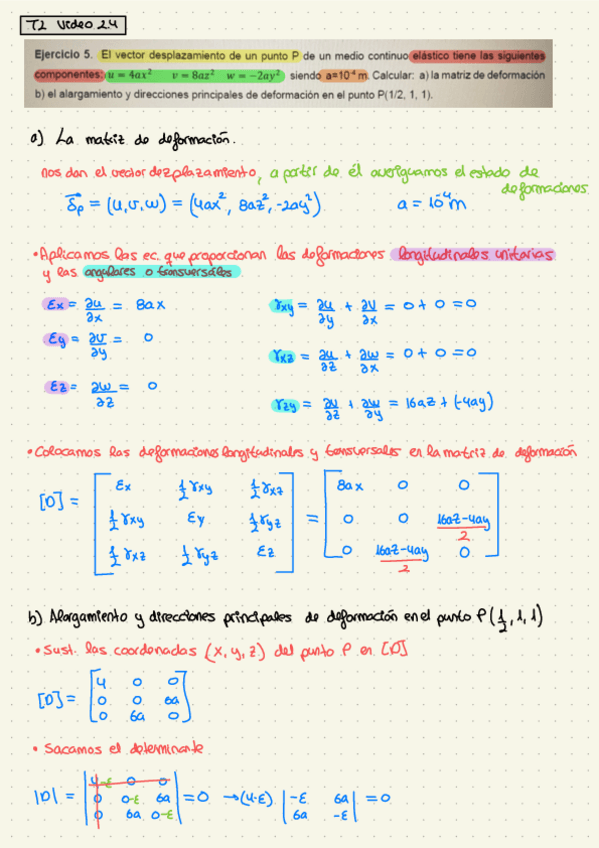 T2 Video 2.4
Ejercicio 5. El vector desplazamiento de un punto P de un medio continuo elástico tiene las siguientes
componentes: u = 4ax² v = 8az² w = -2ay² siendo a=10⁻⁴ m. Calcular: a) la matriz de deformación
b) el alargamiento y direcciones principales de deformación en el punto P(1/2, 1, 1).
a) La matriz de deformación.
nos dan el vector dezplazamiento, a partir de él averiguamos el estado de
deformaciones
δp = (u, v, w) = (4ax², 8az², -2ay²) a = 10⁻⁴m
• Aplicamos las ec. que proporcionan las deformaciones longitudinales unitarias
y las angulares o transversales.
εx = ∂u/∂x = 8ax γxy = ∂u/∂y + ∂v/∂x = 0 + 0 = 0
εy = ∂v/∂y = 0 γxz = ∂u/∂z + ∂w/∂x = 0 + 0 = 0
εz = ∂w/∂z = 0 γzy = ∂v/∂z + ∂w/∂y = 16az + (-4ay)
• Colocamos las deformaciones longitudinales y transversales en la matriz de deformación
εx ½γxy ½γxz 8ax 0 0
[D] = ½γxy εy ½γyz = 0 0 16az-4ay/2
½γxz ½γyz εz 0 16az-4ay/2 0
b) Alargamiento y direcciones principales de deformación en el punto P(½, 1, 1)
• Sust. las coordenadas (x, y, z) del punto P en [D]
4 0 0
[D] = 0 0 6a
0 6a 0
• Sacamos el determinante
4-ε 0 0
|D| = 0 0-ε 6a = 0 → (4-ε) · -ε 6a = 0
0 6a 0-ε 6a -ε